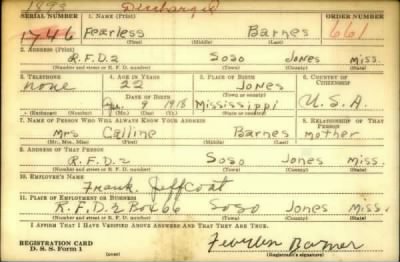 1893 Discharged
SERIAL NUMBER 1. NAME (Print) ORDER NUMBER
1746 Fearless Barnes 661
(First) (Middle) (Last)
2. ADDRESS (Print)
R.F.D. 2 Soso Jones Miss.
(Number and street or R. F. D. number) (Town) (County) (State)
3. TELEPHONE 4. AGE IN YEARS 5. PLACE OF BIRTH 6. COUNTRY OF CITIZENSHIP
none 22 Jones
DATE OF BIRTH (Town or county)
9 1918 Mississippi U.S.A.
(Exchange) (Number) (Mo.) (Day) (Yr.) (State or country)
7. NAME OF PERSON WHO WILL ALWAYS KNOW YOUR ADDRESS 8. RELATIONSHIP OF THAT PERSON
Mrs Calline Barnes mother
(Mr., Mrs., Miss) (First) (Middle) (Last)
9. ADDRESS OF THAT PERSON
R.F.D. 2 Soso Jones Miss.
(Number and street or R. F. D. number) (Town) (County) (State)
10. EMPLOYER'S NAME
Frank Jeffcoat
11. PLACE OF EMPLOYMENT OR BUSINESS
R.F.D. 2 Box 66 Soso Jones Miss.
(Number and street or R. F. D. number) (Town) (County) (State)
I AFFIRM THAT I HAVE VERIFIED ABOVE ANSWERS AND THAT THEY ARE TRUE.
REGISTRATION CARD
D. S. S. Form 1 (over) (Registrant's signature)